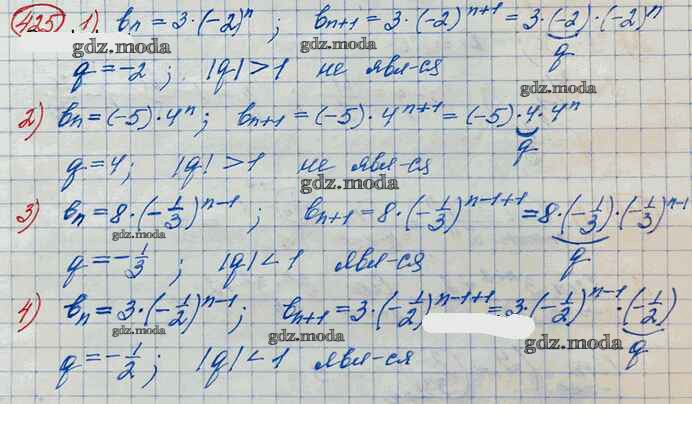 425. 1) bₙ = 3·(-2)ⁿ ; bₙ₊₁ = 3·(-2)ⁿ⁺¹ = 3·(-2)·(-2)ⁿ
gdz.moda gdz.moda q
q = -2 ; |q| > 1 не явл-ся gdz.moda
2) bₙ = (-5)·4ⁿ ; bₙ₊₁ = (-5)·4ⁿ⁺¹ = (-5)·4·4ⁿ
q
q = 4 ; |q| > 1 не явл-ся
gdz.moda
3) bₙ = 8·(-1/3)ⁿ⁻¹ ; bₙ₊₁ = 8·(-1/3)ⁿ⁻¹⁺¹ = 8·(-1/3)·(-1/3)ⁿ⁻¹
gdz.moda q
q = -1/3 ; |q| < 1 явл-ся
4) bₙ = 3·(-1/2)ⁿ⁻¹ ; bₙ₊₁ = 3·(-1/2)ⁿ⁻¹⁺¹ = 3·(-1/2)ⁿ⁻¹·(-1/2)
gdz.moda gdz.moda gdz.moda q
q = -1/2 ; |q| < 1 явл-ся